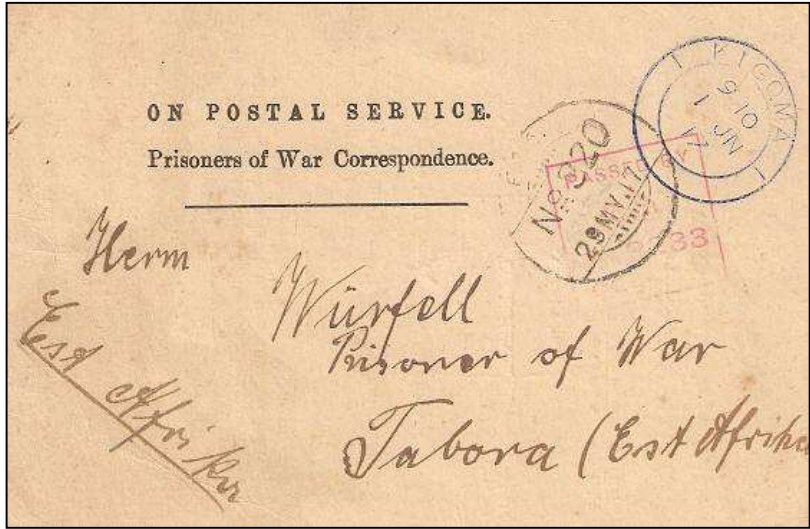 ON POSTAL SERVICE.
Prisoners of War Correspondence.
KIGOMA
No 320
29 MY. 17
PASSED BY
33
Herrn
Würfell
Prisoner of War
Tabora (Est Afrika
Est Afrika